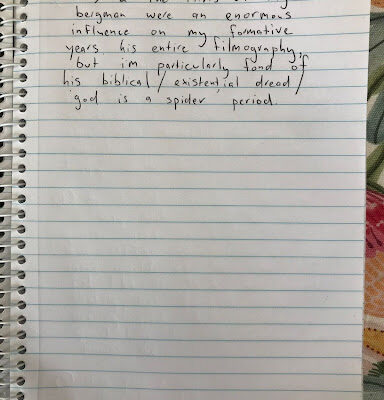 the films of
bergman were an enormous
influence on my formative
years his entire filmography,
but im particularly fond of
his biblical/existential dread/
god is a spider period.